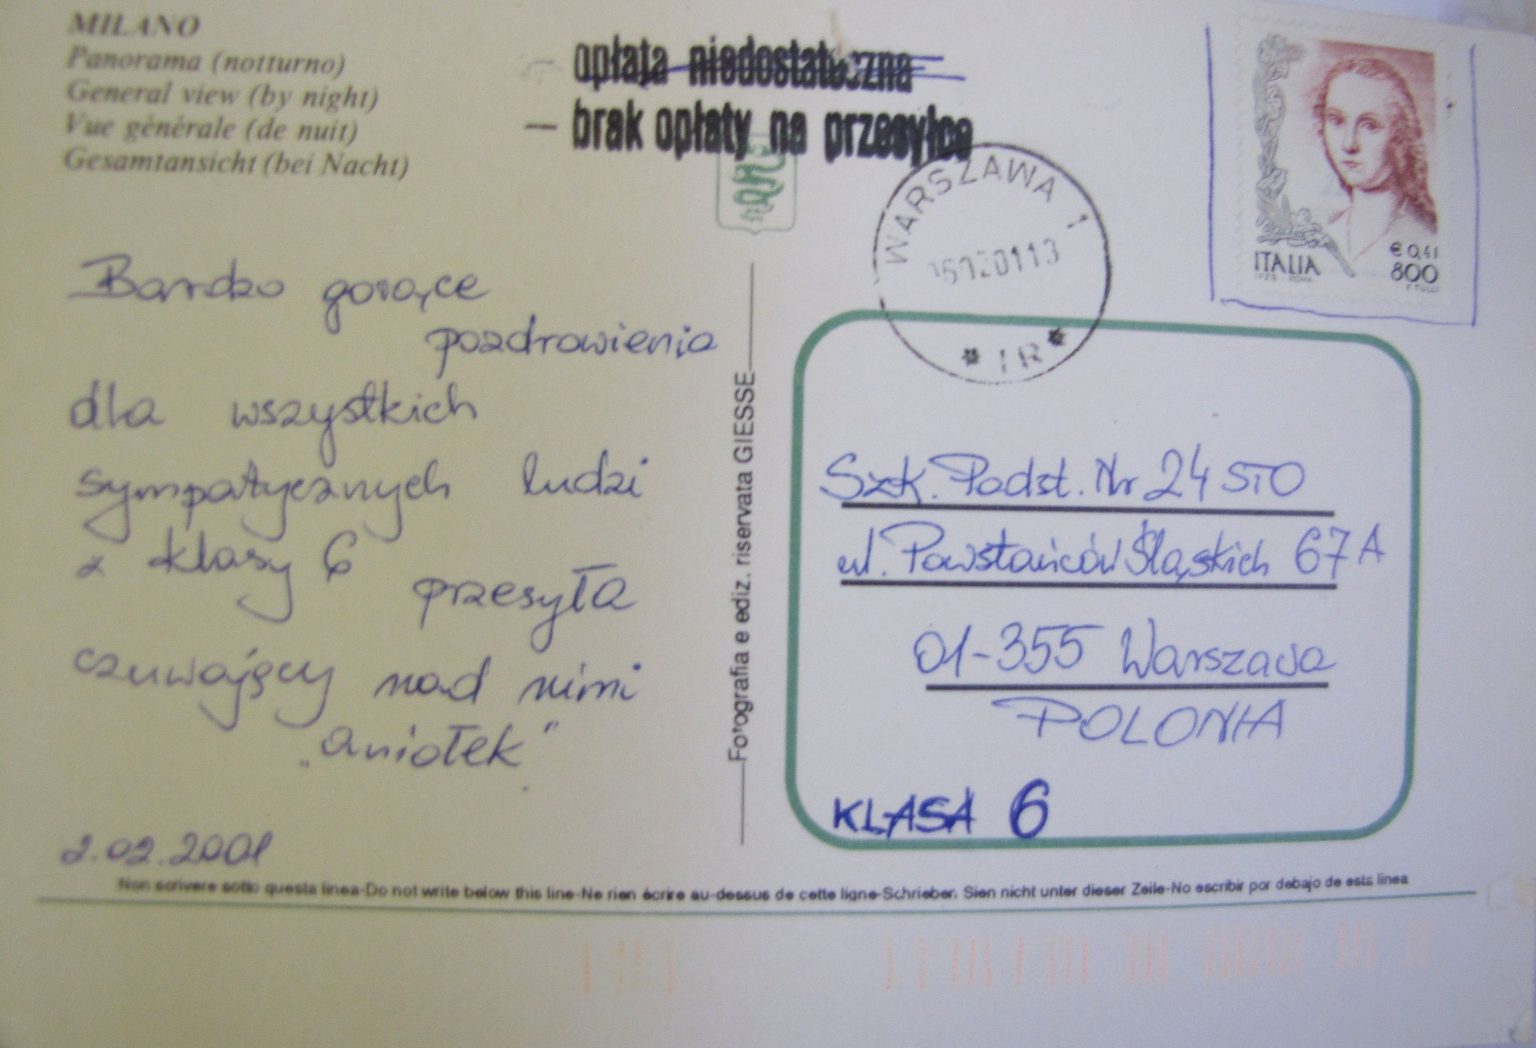 MILANO
Panorama (notturno)
General view (by night)
Vue générale (de nuit)
Gesamtansicht (bei Nacht)
opłata niedostateczna
— brak opłaty na przesyłce
WARSZAWA 1
* 1R *
ITALIA
€ 0,41
800
Bardzo gorące
pozdrowienia
dla wszystkich
sympatycznych ludzi
z klasy 6
przesyła
czuwający nad nimi
„aniołek”
2.02.2001
Fotografia e ediz. riservata GIESSE
Szk. Podst. Nr 24 STO
ul. Powstańców Śląskich 67A
01-355 Warszawa
POLONIA
KLASA 6
Non scrivere sotto questa linea-Do not write below this line-Ne rien écrire au-dessus de cette ligne-Schrieber. Sien nicht unter dieser Zeile-No escribir por debajo de esta linea